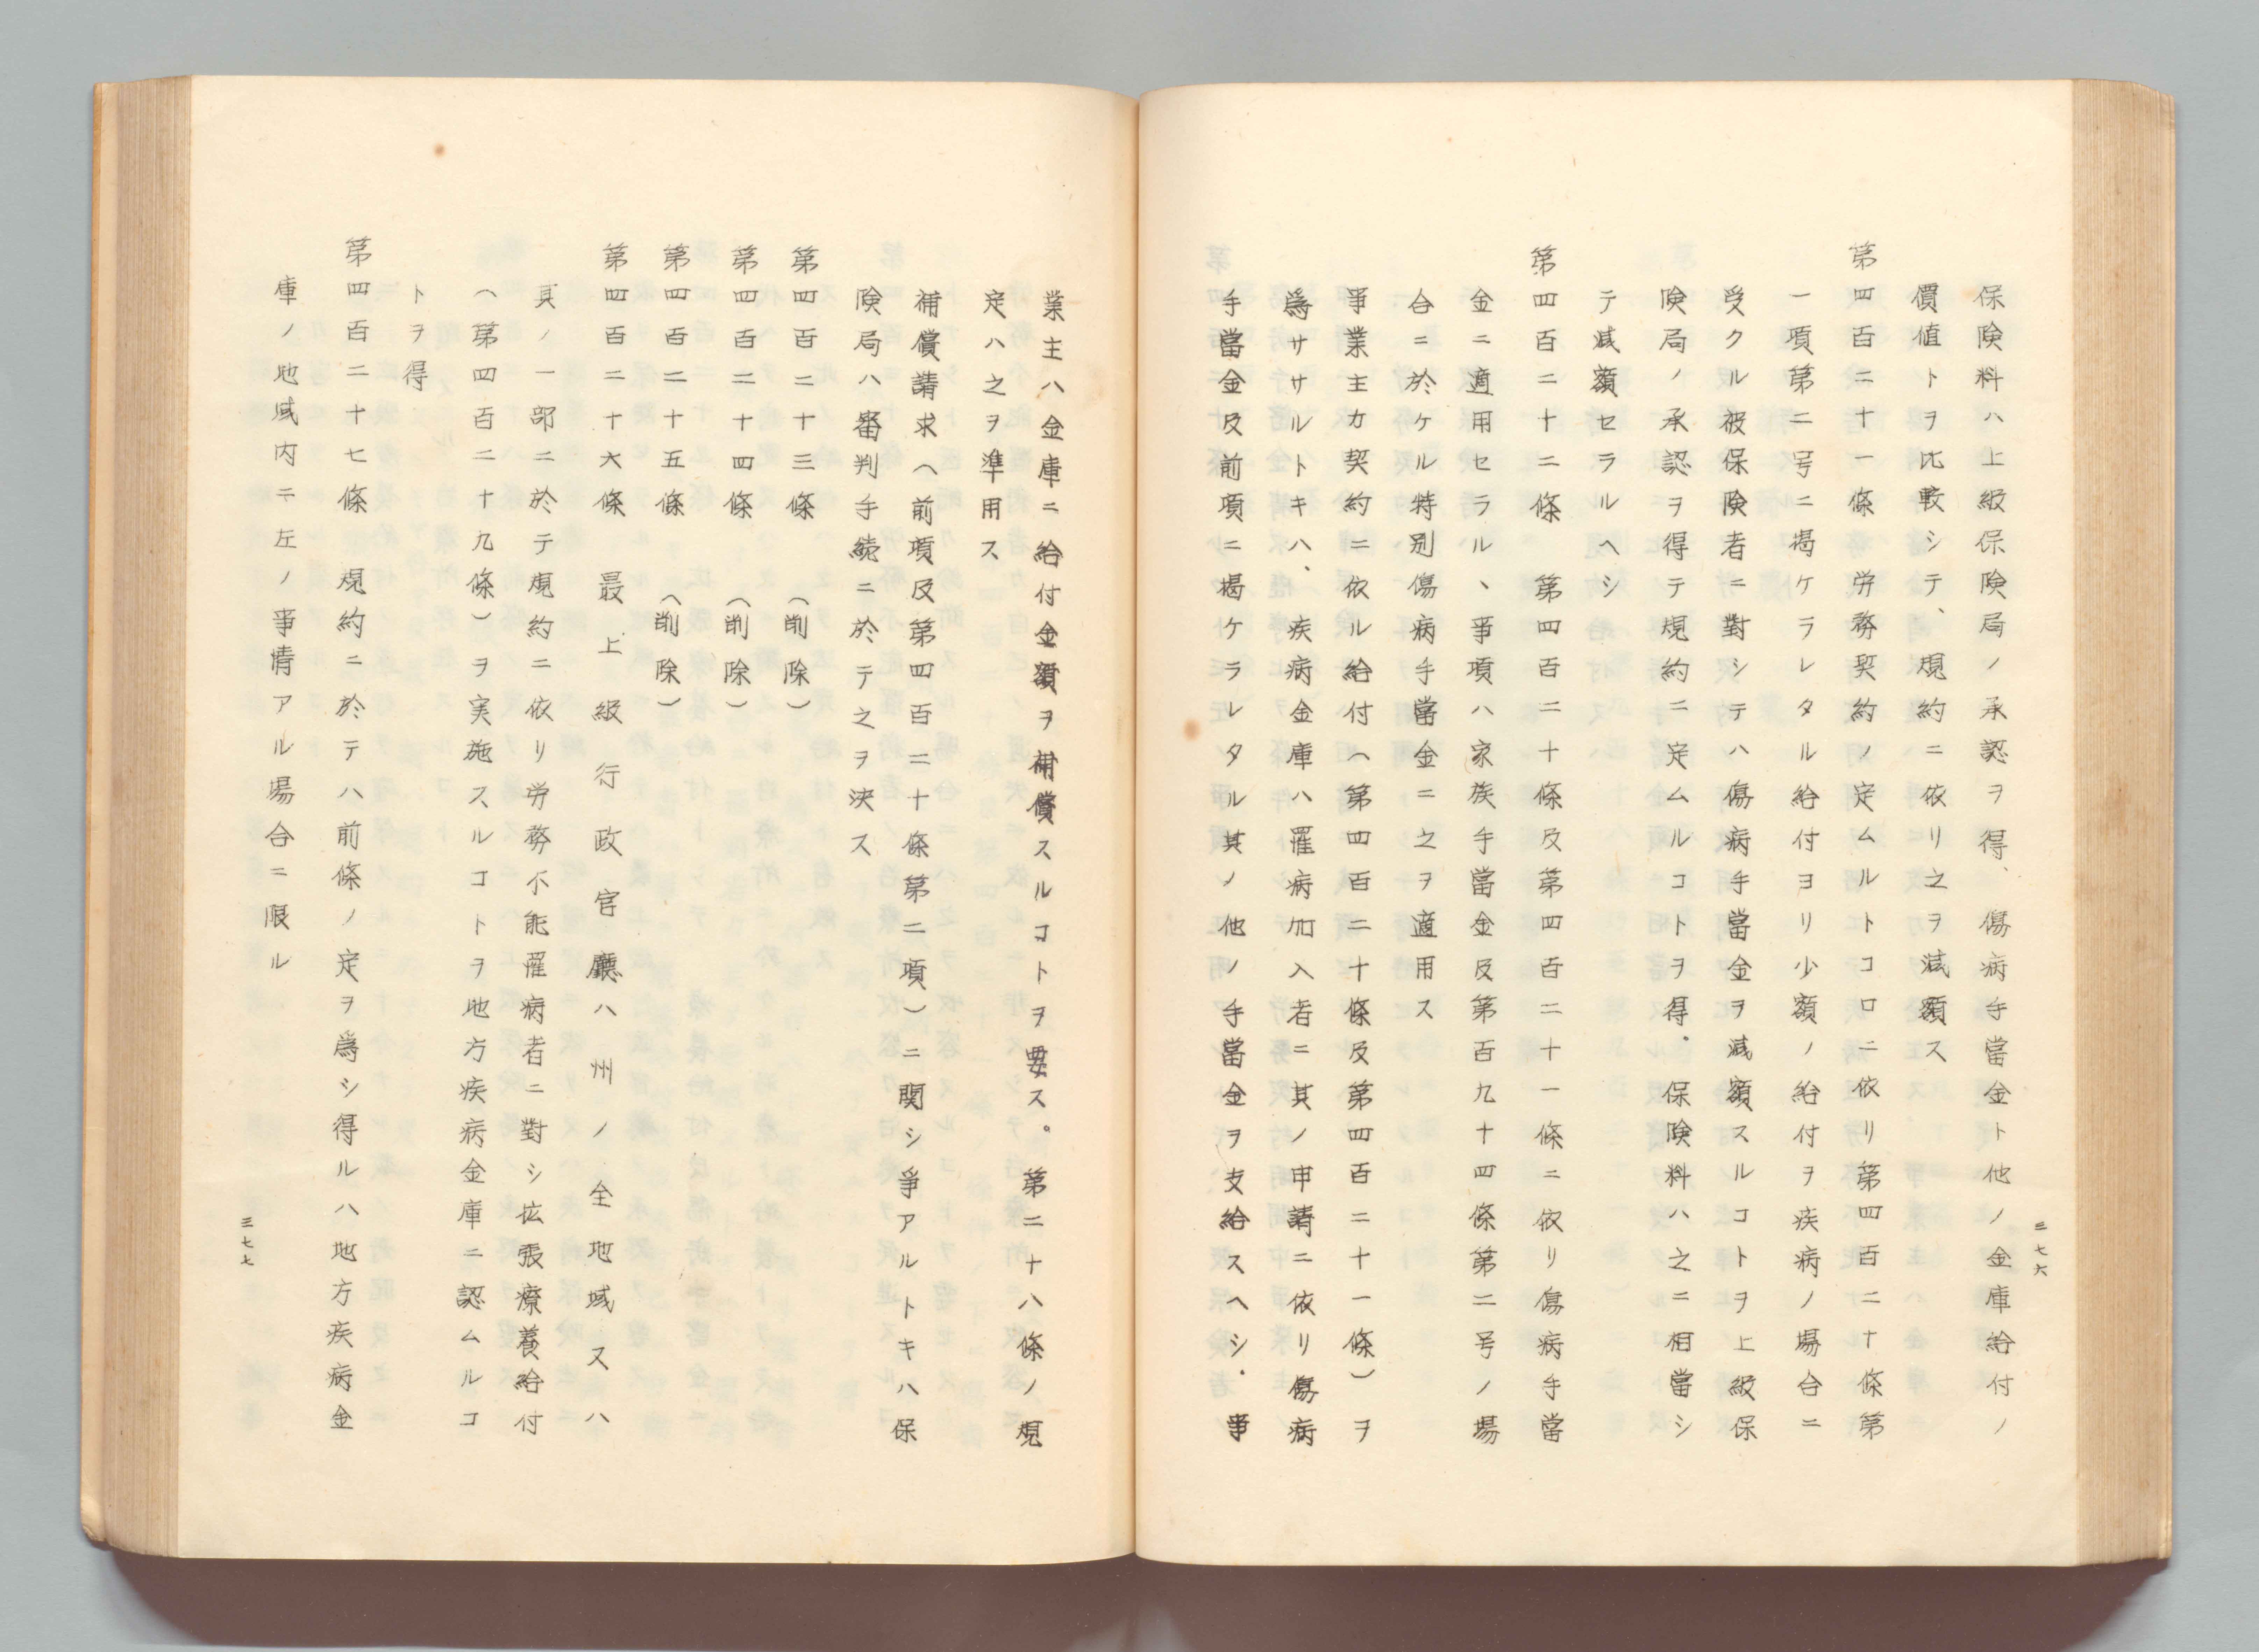 三七六
保険料ハ上級保険局ノ承認ヲ得、傷病手當金ト他ノ金庫給付ノ
價値トヲ比較シテ、規約ニ依リ之ヲ減額ス
第四百二十一條　労務契約ノ定ムルトコロニ依リ第四百二十條第
一項第二号ニ揭ケラレタル給付ヨリ少額ノ給付ヲ疾病ノ場合ニ
受クル被保険者ニ對シテハ傷病手當金ヲ減額スルコトヲ上級保
険局ノ承認ヲ得テ規約ニ定ムルコトヲ得．保険料ハ之ニ相當シ
テ減額セラルヘシ
第四百二十二條　第四百二十條及第四百二十一條ニ依リ傷病手當
金ニ適用セラル、事項ハ家族手當金及第百九十四條第二号ノ場
合ニ於ケル特別傷病手當金ニ之ヲ適用ス
事業主カ契約ニ依ル給付（第四百二十條及第四百二十一條）ヲ
爲サヽルトキハ、疾病金庫ハ罹病加入者ニ其ノ申請ニ依リ傷病
手當金及前項ニ揭ケラレタル其ノ他ノ手當金ヲ支給スヘシ．事
業主ハ金庫ニ給付金額ヲ補償スルコトヲ要ス。第二十八條ノ規
定ハ之ヲ準用ス
補償請求（前項及第四百二十條第二項）ニ関シ爭アルトキハ保
険局ハ審判手続ニ於テ之ヲ決ス
第四百二十三條　（削除）
第四百二十四條　（削除）
第四百二十五條　（削除）
第四百二十六條　最上級行政官廳ハ州ノ全地域又ハ
其ノ一部ニ於テ規約ニ依リ労務不能罹病者ニ對シ拡張療養給付
（第四百二十九條）ヲ実施スルコトヲ地方疾病金庫ニ認ムルコ
トヲ得
第四百二十七條　規約ニ於テハ前條ノ定ヲ爲シ得ルハ地方疾病金
庫ノ地域内ニ左ノ事情アル場合ニ限ル
三七七